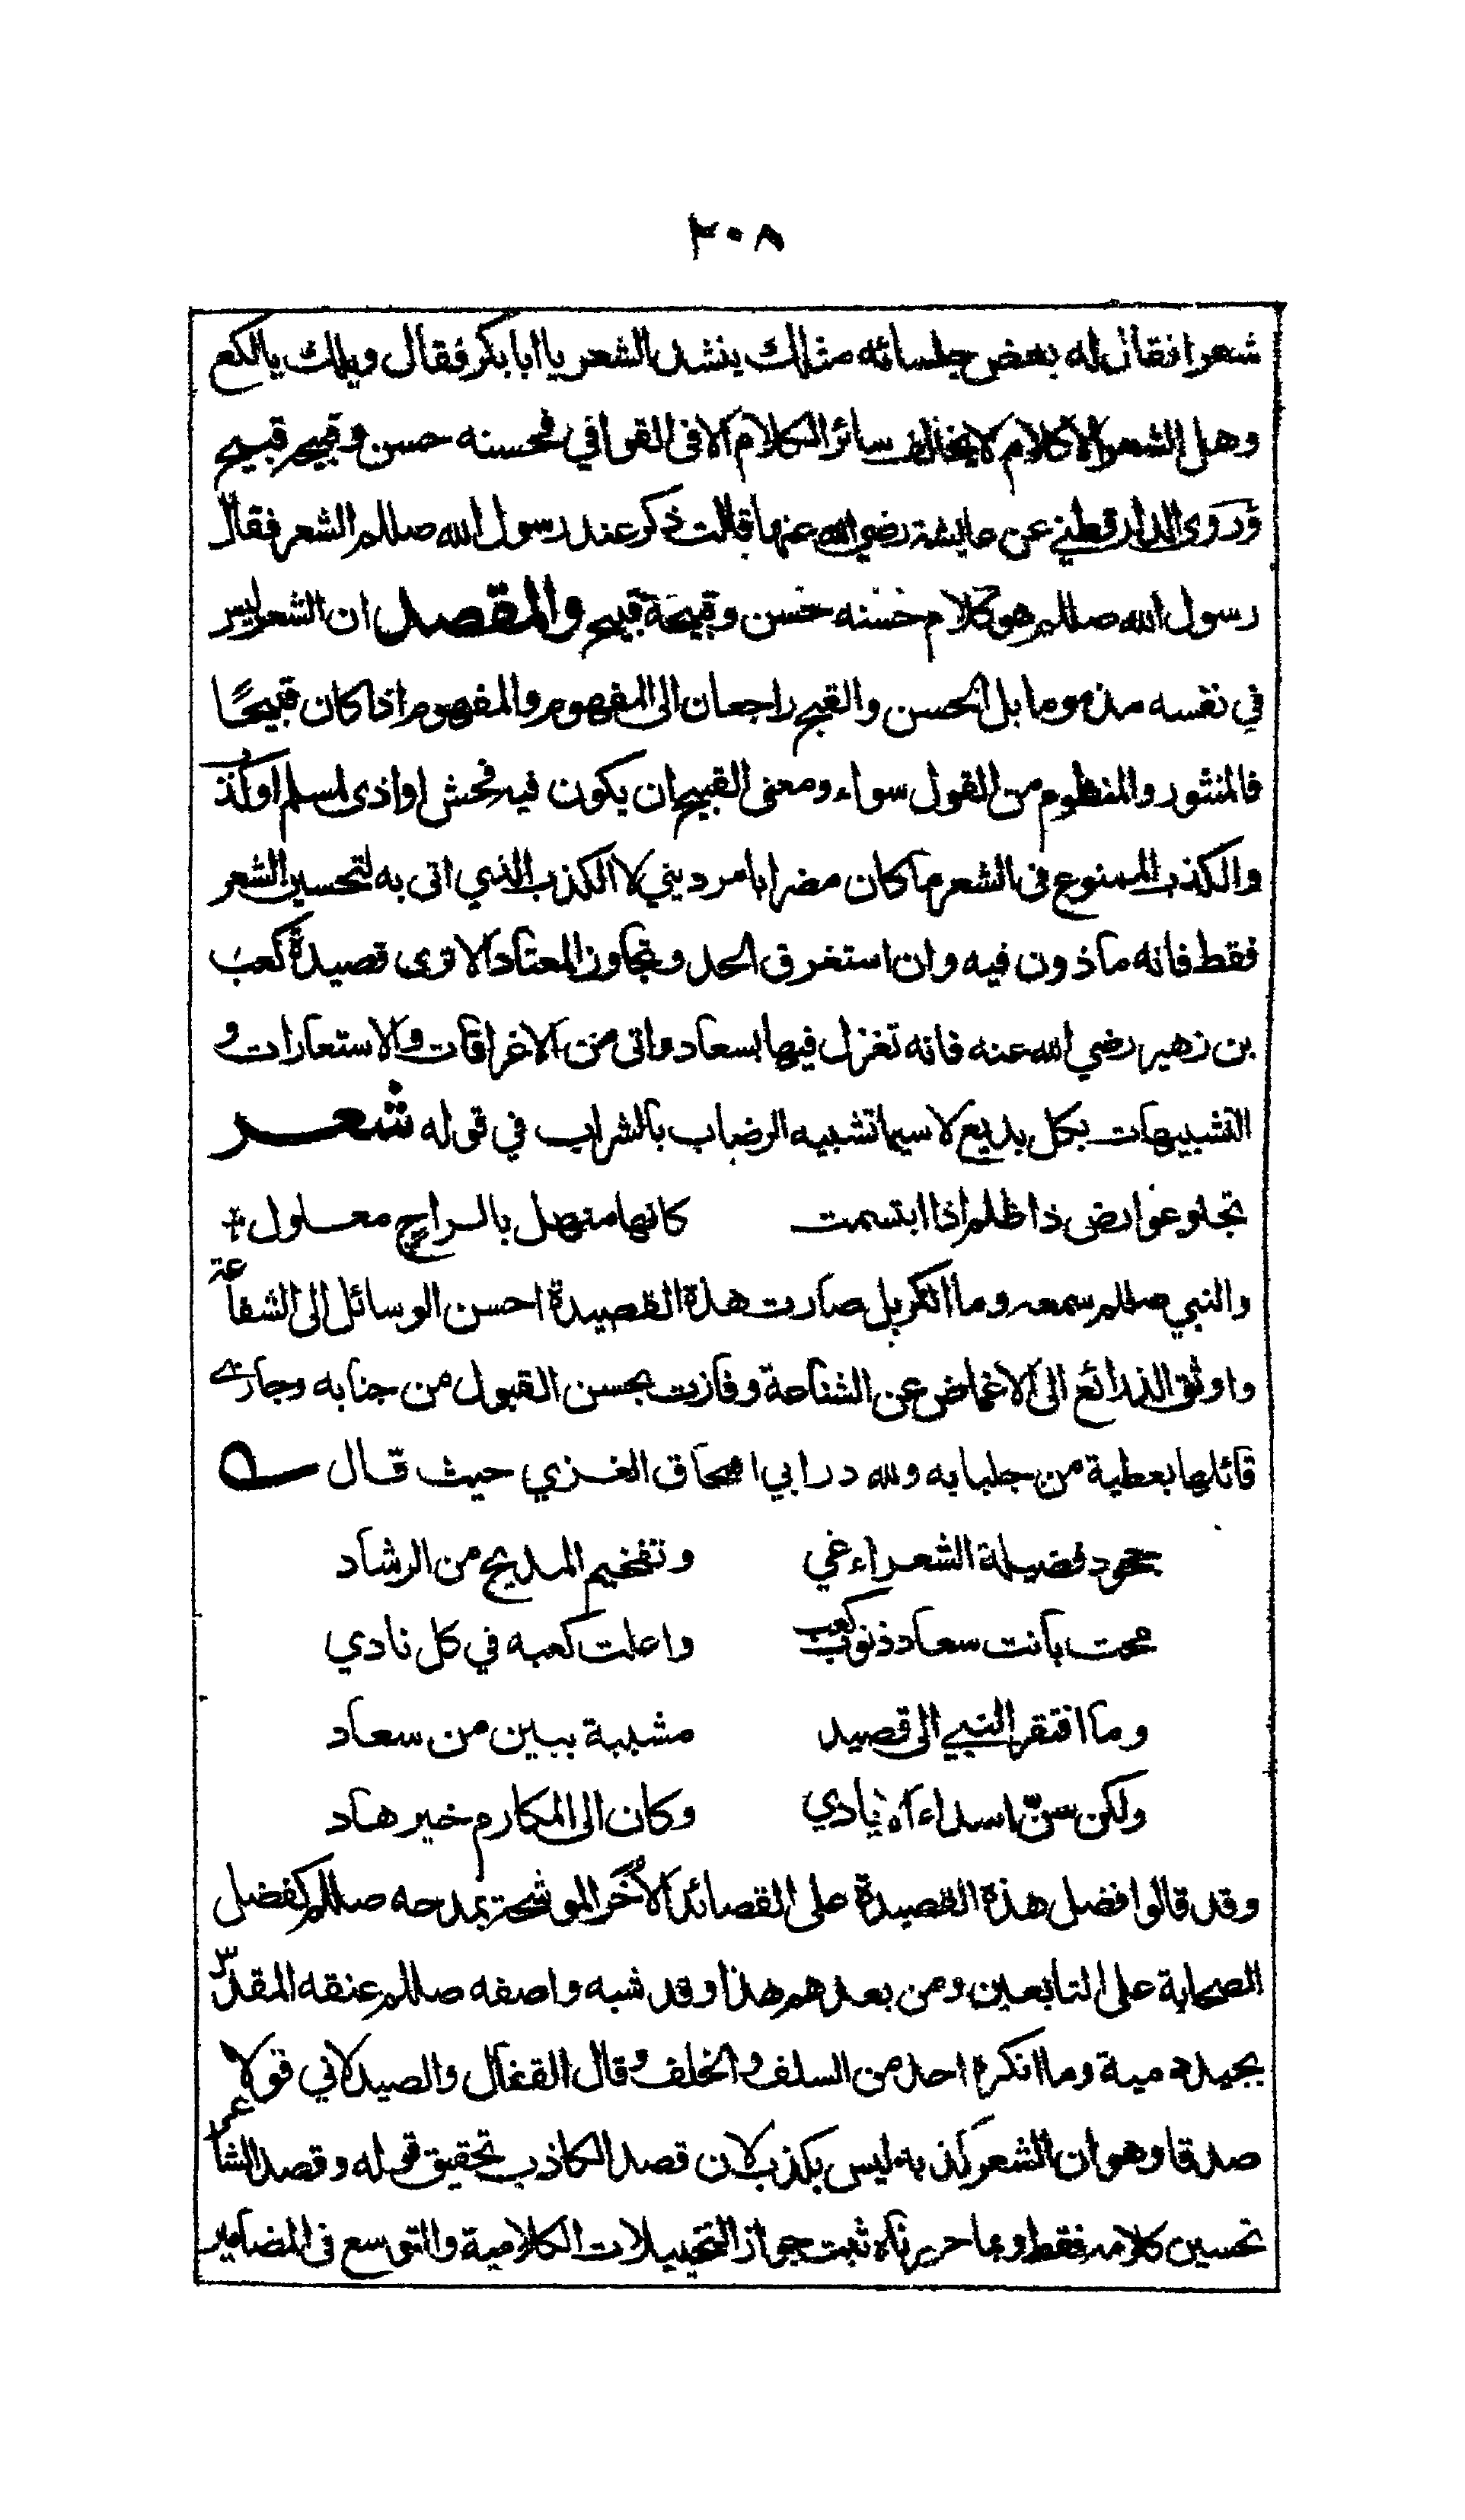 ٢٠٨
شعرا فقال له بعض جلسائه مثلك ينشد الشعر يا ابا بكر فقال ويلك يا لكع
وهل الشعر الا كلام لا يخالف سائر الكلام الا فى القوافي فحسنه حسن وقبيحه قبيح
وروى الدار قطني عن عايشة رضي الله عنها قالت ذكر عند رسول الله صللم الشعر فقال
رسول الله صللم هو كلام حسنه حسن وقبيحة قبيح والمقصد ان الشعر ليس
في نفسه مذموما بل الحسن والقبح راجعان الى المفهوم والمفهوم اذا كان قبيحًا
فالمنثور والمنظوم من القول سواء ومعنى القبيح ان يكون فيه فحش او اذى لمسلم او كذب
والكذب الممنوع فى الشعر ما كان مضرا بامر ديني لا الكذب الذي اتى به لتحسين الشعر
فقط فانه ماذون فيه وان استغرق الحد وتجاوز المعتاد الا ترى قصيدة كعب
بن زهير رضي الله عنه فانه تغزل فيها بسعاد واتى من الاغراقات والاستعارات و
التشبيهات بكل بديع لا سيما تشبيه الرضاب بالشراب في قوله شعر
تجلو عوارض ذا ظلم اذا ابتسمت كانها منهل بالراح معلول
والنبي صللم سمعه وما انكر بل صارت هذة القصيدة احسن الوسائل الى الشفاعة
واوثق الذرائع الى الاغماض عن الشناعة وفازت بحسن القبول من جنابه وجازى
قائلها بعطية من جلبابه ولله در ابي اسحاق الغزي حيث قال
جحود فضيلة الشعراء غي وتفخيم المديح من الرشاد
محت بانت سعاد ذنوب كعب واعلت كعبه في كل نادي
وما افتقر النبي الى قصيد مشببة ببين من سعاد
ولكن سنّ اسداء الايادي وكان الى المكارم خير هاد
وقد قالوا فضل هذة القصيدة على القصائد الأخر الموشحة بمدحه صللم كفضل
الصحابة على التابعين ومن بعدهم هذا وقد شبه واصفه صللم عنقه المقدّس
بجيد دمية وما انكره احد من السلف والخلف وقال القفال والصيدلاني قولا
صدقا وهو ان الشعر كذبه ليس بكذب لان قصد الكاذب تحقيق قوله وقصد الشاعر
تحسين كلامه فقط وبما حررناه ثبت جواز التخييلات الكلامية والتوسع فى المضامير